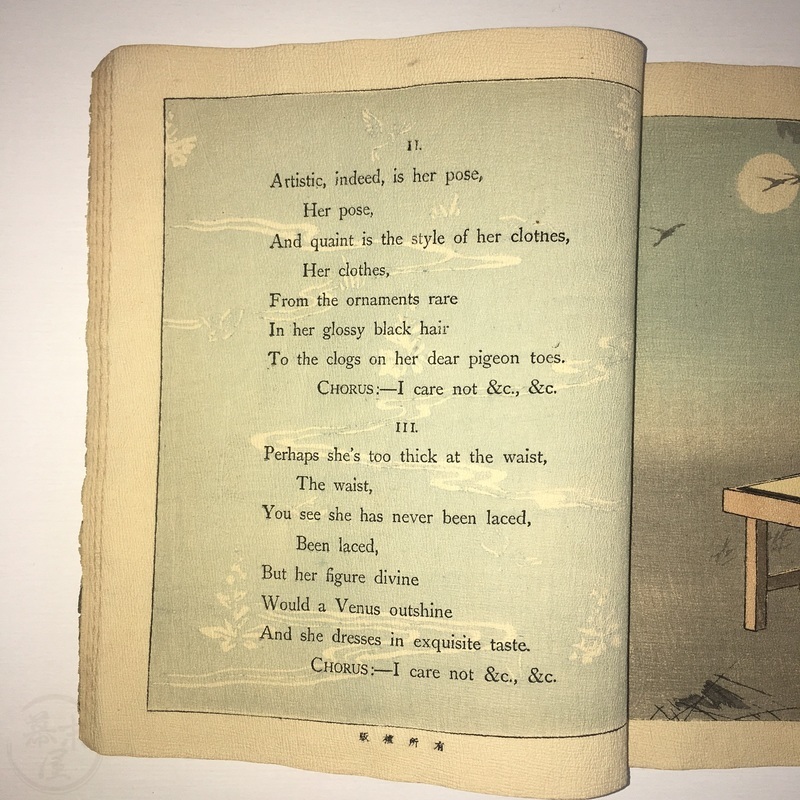 II.
Artistic, indeed, is her pose,
Her pose,
And quaint is the style of her clothes,
Her clothes,
From the ornaments rare
In her glossy black hair
To the clogs on her dear pigeon toes.
CHORUS:—I care not &c., &c.
III.
Perhaps she's too thick at the waist,
The waist,
You see she has never been laced,
Been laced,
But her figure divine
Would a Venus outshine
And she dresses in exquisite taste.
CHORUS:—I care not &c., &c.
版權所有